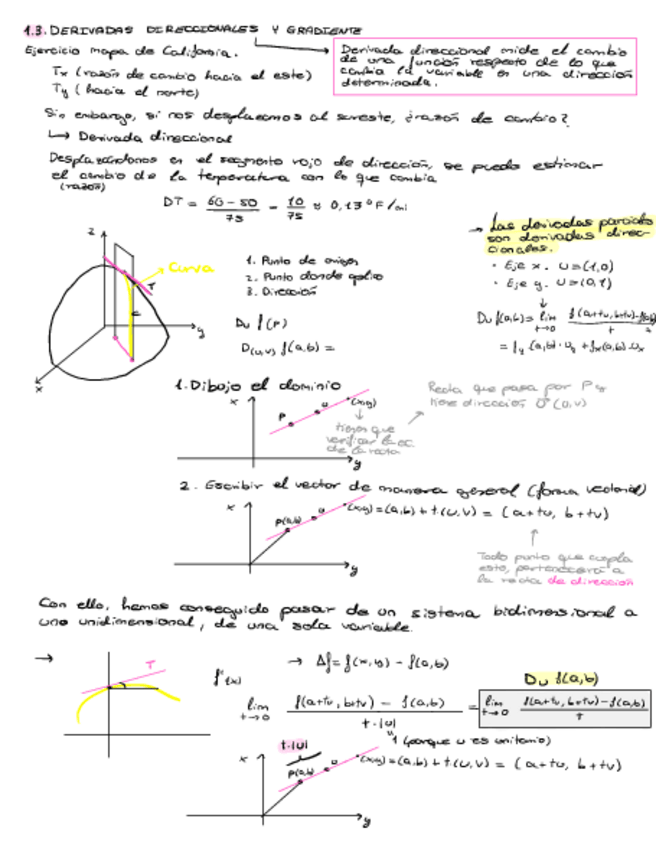 1.3. DERIVADAS DIRECCIONALES Y GRADIENTE
Ejercicio mapa de California.
Derivada direccional mide el cambio
de una función respecto de lo que
cambia la variable en una dirección
determinada.
Tx (razón de cambio hacia el este)
Ty ( hacia el norte)
Sin embargo, si nos desplazamos al sureste, ¿razón de cambio?
↳ Derivada direccional
Desplazándonos en el segmento rojo de dirección, se puede estimar
el cambio de la temperatura con lo que cambia
(razón)
DT = 60 - 50 / 75 = 10 / 75 ≈ 0,13 °F/mi
→ Las derivadas parciales
son derivadas direc-
cionales.
· Eje x. u=(1,0)
· Eje y. u=(0,1)
↓
Du f(a,b) = lim t→0 f(a+tu, b+tv)-f(a,b) / t
= fy (a,b) · uy + fx(a,b) ux
z
Curva
T
y
x
1. Punto de origen
2. Punto donde aplico
3. Dirección
Du f(P)
D(u,v) f(a,b) =
1. Dibujo el dominio
x
P
u
(x,y)
y
tienen que
verificar la ec.
de la recta
Recta que pasa por P y
tiene dirección U (u,v)
2. Escribir el vector de manera general (forma vectorial)
x
P(a,b)
u
(x,y) = (a,b) + t.(u,v) = (a+tu, b+tv)
y
Todo punto que cumpla
esto, pertenecerá a
la recta de dirección
Con ello, hemos conseguido pasar de un sistema bidimensional a
uno unidimensional, de una sola variable.
→
T
f'(x)
→ Δf = f(x,y) - f(a,b)
lim t→0 f(a+tu, b+tv) - f(a,b) / t·|u|
=
Du f(a,b)
lim t→0 f(a+tu, b+tv)-f(a,b) / t
1 (porque u es unitario)
t·|u|
x
P(a,b)
u
(x,y) = (a,b) + t.(u,v) = (a+tu, b+tv)
y